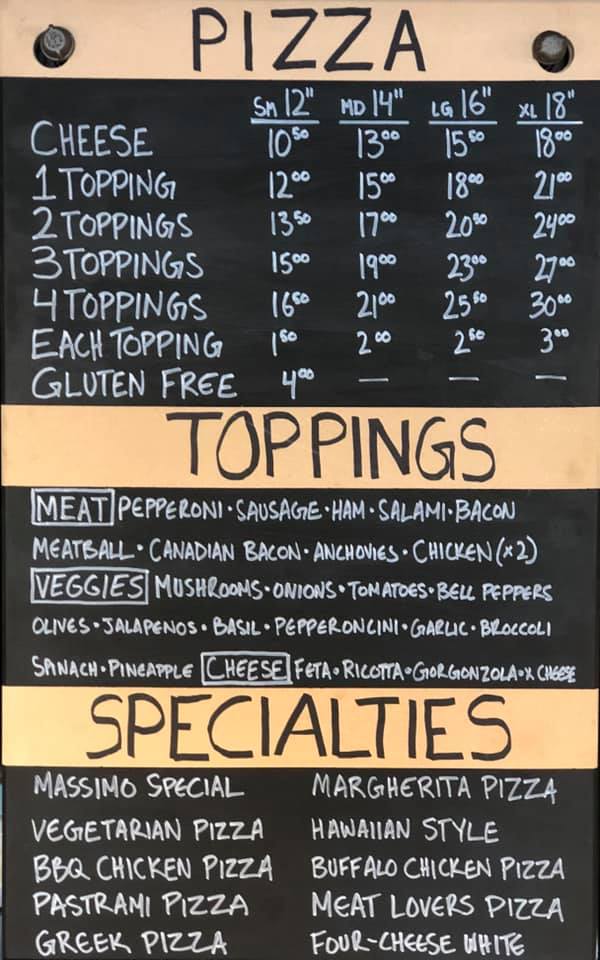 PIZZA
SM 12" MD 14" LG 16" XL 18"
CHEESE 10⁵⁰ 13⁰⁰ 15⁵⁰ 18⁰⁰
1 TOPPING 12⁰⁰ 15⁰⁰ 18⁰⁰ 21⁰⁰
2 TOPPINGS 13⁵⁰ 17⁰⁰ 20⁵⁰ 24⁰⁰
3 TOPPINGS 15⁰⁰ 19⁰⁰ 23⁰⁰ 27⁰⁰
4 TOPPINGS 16⁵⁰ 21⁰⁰ 25⁵⁰ 30⁰⁰
EACH TOPPING 1⁵⁰ 2⁰⁰ 2⁵⁰ 3⁰⁰
GLUTEN FREE 4⁰⁰ — — —
TOPPINGS
MEAT PEPPERONI • SAUSAGE • HAM • SALAMI • BACON
MEATBALL • CANADIAN BACON • ANCHOVIES • CHICKEN (x2)
VEGGIES MUSHROOMS • ONIONS • TOMATOES • BELL PEPPERS
OLIVES • JALAPENOS • BASIL • PEPPERONCINI • GARLIC • BROCCOLI
SPINACH • PINEAPPLE CHEESE FETA • RICOTTA • GORGONZOLA • X CHEESE
SPECIALTIES
MASSIMO SPECIAL MARGHERITA PIZZA
VEGETARIAN PIZZA HAWAIIAN STYLE
BBQ CHICKEN PIZZA BUFFALO CHICKEN PIZZA
PASTRAMI PIZZA MEAT LOVERS PIZZA
GREEK PIZZA FOUR-CHEESE WHITE